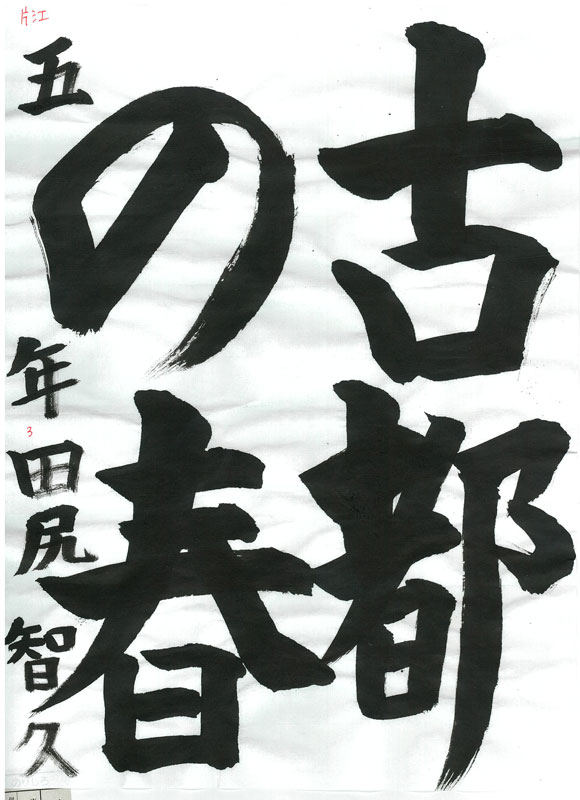 古都
の春
五年 田尻智久
片江
3